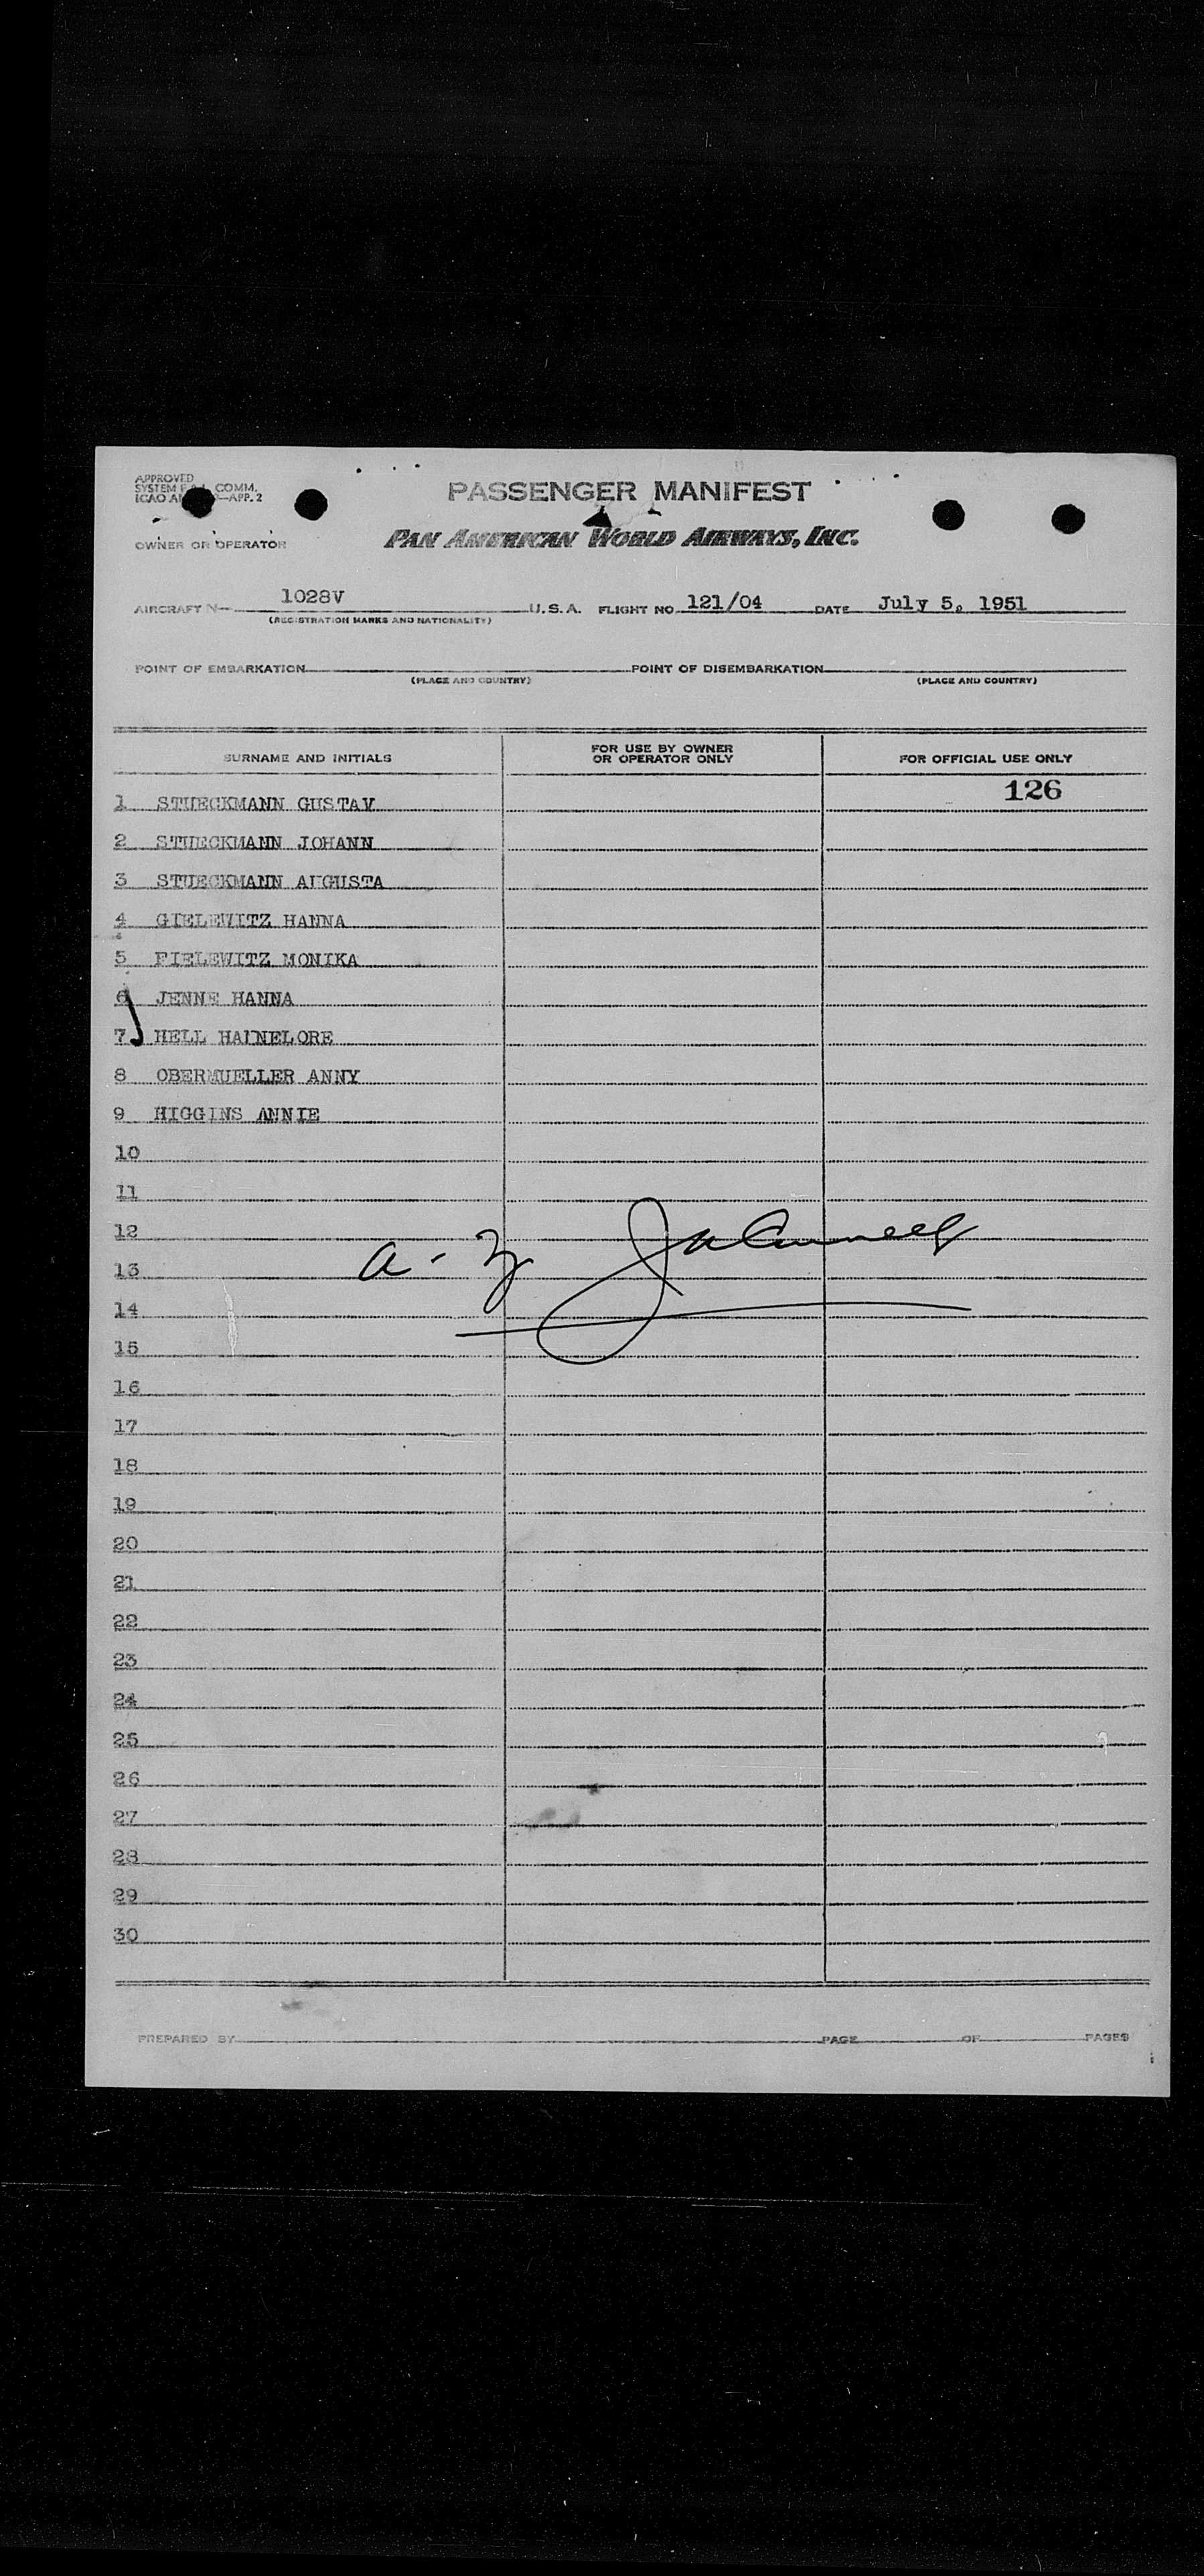 APPROVED
SYSTEM COMM.
ICAO —APP. 2
PASSENGER MANIFEST
OWNER OR OPERATOR PAN AMERICAN WORLD AIRWAYS, INC.
AIRCRAFT N— 1028V U.S.A. FLIGHT NO. 121/04 DATE July 5, 1951
(REGISTRATION MARKS AND NATIONALITY)
POINT OF EMBARKATION POINT OF DISEMBARKATION
(PLACE AND COUNTRY) (PLACE AND COUNTRY)
SURNAME AND INITIALS FOR USE BY OWNER OR OPERATOR ONLY FOR OFFICIAL USE ONLY
126
1 STUECKMANN GUSTAV
2 STUECKMANN JOHANN
3 STUECKMANN AUGUSTA
4 GIELEWITZ HANNA
5 FIELEWITZ MONIKA
6 JENNE HANNA
7 HELL HANNELORE
8 OBERMUELLER ANNY
9 HIGGINS ANNIE
10
11
12
13
14
15
16
17
18
19
20
21
22
23
24
25
26
27
28
29
30
PREPARED BY PAGE OF PAGES